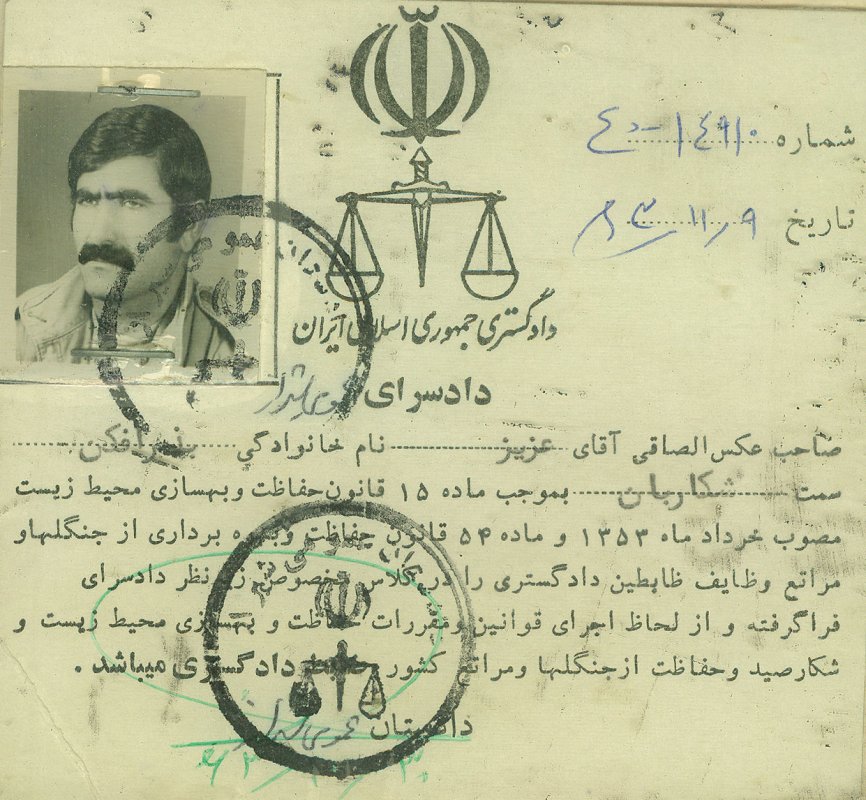 شماره
تاریخ ۶۳/۱۱/۹
دادگستری جمهوری اسلامی ایران
دادسرای عمومی شیراز
صاحب عکس الصاقی آقای عزیز نام خانوادگی
سمت شکاربان بموجب ماده ۱۵ قانون حفاظت وبهسازی محیط زیست
مصوب خرداد ماه ۱۳۵۳ و ماده ۵۴ قانون حفاظت وبهره برداری از جنگلهاو
مراتع وظایف ظابطین دادگستری را در کلاس مخصوص زیر نظر دادسرای
فراگرفته و از لحاظ اجرای قوانین ومقررات حفاظت و بهسازی محیط زیست و
شکارصید وحفاظت ازجنگلها ومراتع کشور ضابط دادگستری میباشد .
دادستان عمومی شیراز